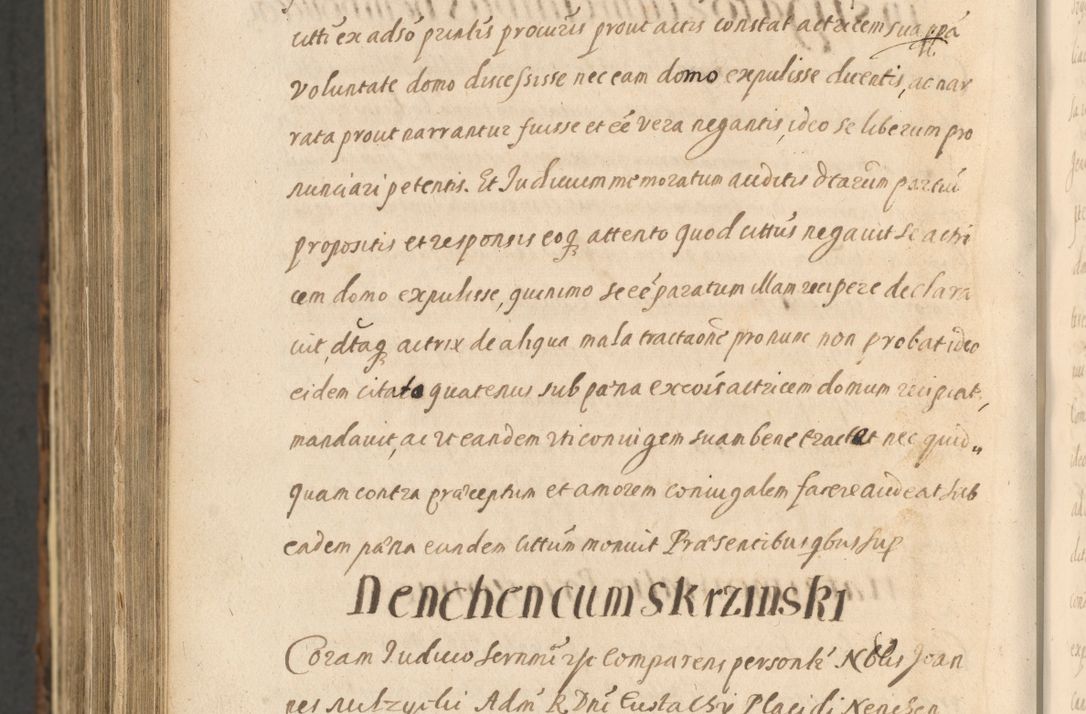 citti ex adso prntis procuris prout actis constat actricem sua ppā
voluntate domo discessisse nec eam domo expulisse dicentis, ac nar
rata prout narrantur fuisse et eē vera negantis, ideo se liberum pro
nunciari petentis. Et Judicium memoratum auditis dtarum partiū
propositis et responsis eoq attento quod cittus negavit se actri
cem domo expulisse, quinimo se eē paratum illam recipere declara
vit, dtaq actrix de aliqua mala tractaone pro nunc non probat ideo
eidem citato quatenus sub paena excois actricem domum recipiat,
mandavit, ac ut eandem uti coniugem suam bene tractet nec quid„
quam contra praeceptum et amorem coniugalem facere audeat sub
eadem paena eundem cittum monuit Praesentibus qbus sup
Nenchen cum Skrzinski
Coram Judicio Sernmū rsc Comparens personlr Noblis Joan
nes Adm R Dni Eustachy Placidi Nenchen